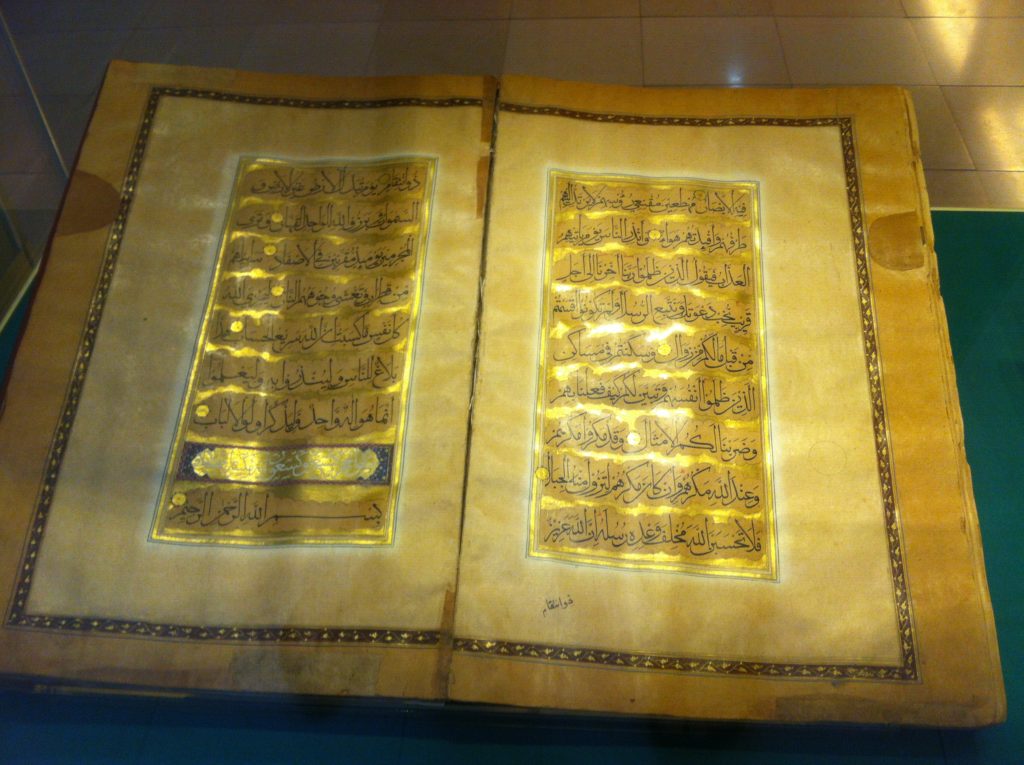 فيه الابصار مهطعين مقنعي رؤسهم لا يرتد اليهم
طرفهم وافئدتهم هواء وانذر الناس يوم ياتيهم
العذاب فيقول الذين ظلموا ربنا اخرنا الى اجل
قريب نجب دعوتك ونتبع الرسل اولم تكونوا اقسمتم
من قبل مالكم من زوال وسكنتم في مساكن
الذين ظلموا انفسهم وتبين لكم كيف فعلنا بهم
وضربنا لكم الامثال وقد مكروا مكرهم
وعند الله مكرهم وان كان مكرهم لتزول منه الجبال
فلا تحسبن الله مخلف وعده رسله ان الله عزيز
ذو انتقام
ذو انتقام يوم تبدل الارض غير الارض و
السموات وبرزوا لله الواحد القهار وترى
المجرمين يومئذ مقرنين في الاصفاد سرابيلهم
من قطران وتغشى وجوههم النار ليجزي الله
كل نفس ما كسبت ان الله سريع الحساب هذا
بلاغ للناس ولينذروا به وليعلموا
انما هو اله واحد وليذكر اولوا الالباب
بسم الله الرحمن الرحيم